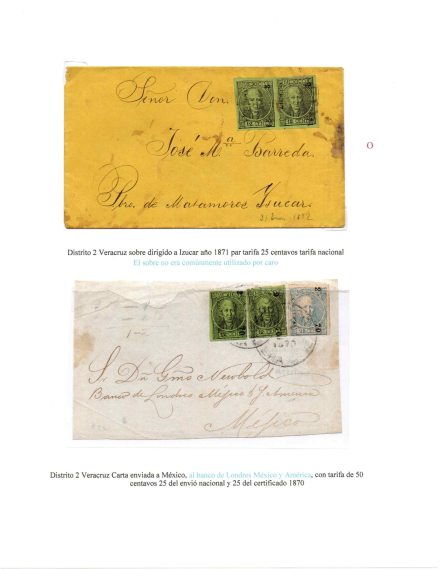 Señor Don.
José Ma. Barreda.
O
Pto. de Matamoros Izucar.
Distrito 2 Veracruz sobre dirigido a Izucar año 1871 par tarifa 25 centavos tarifa nacional
El sobre no era comúnmente utilizado por caro
2 70
S. Dn. Gmo Newbold
Banco de Londres Mejico y America
Mejico
Distrito 2 Veracruz Carta enviada a México, al banco de Londres México y América, con tarifa de 50
centavos 25 del envió nacional y 25 del certificado 1870